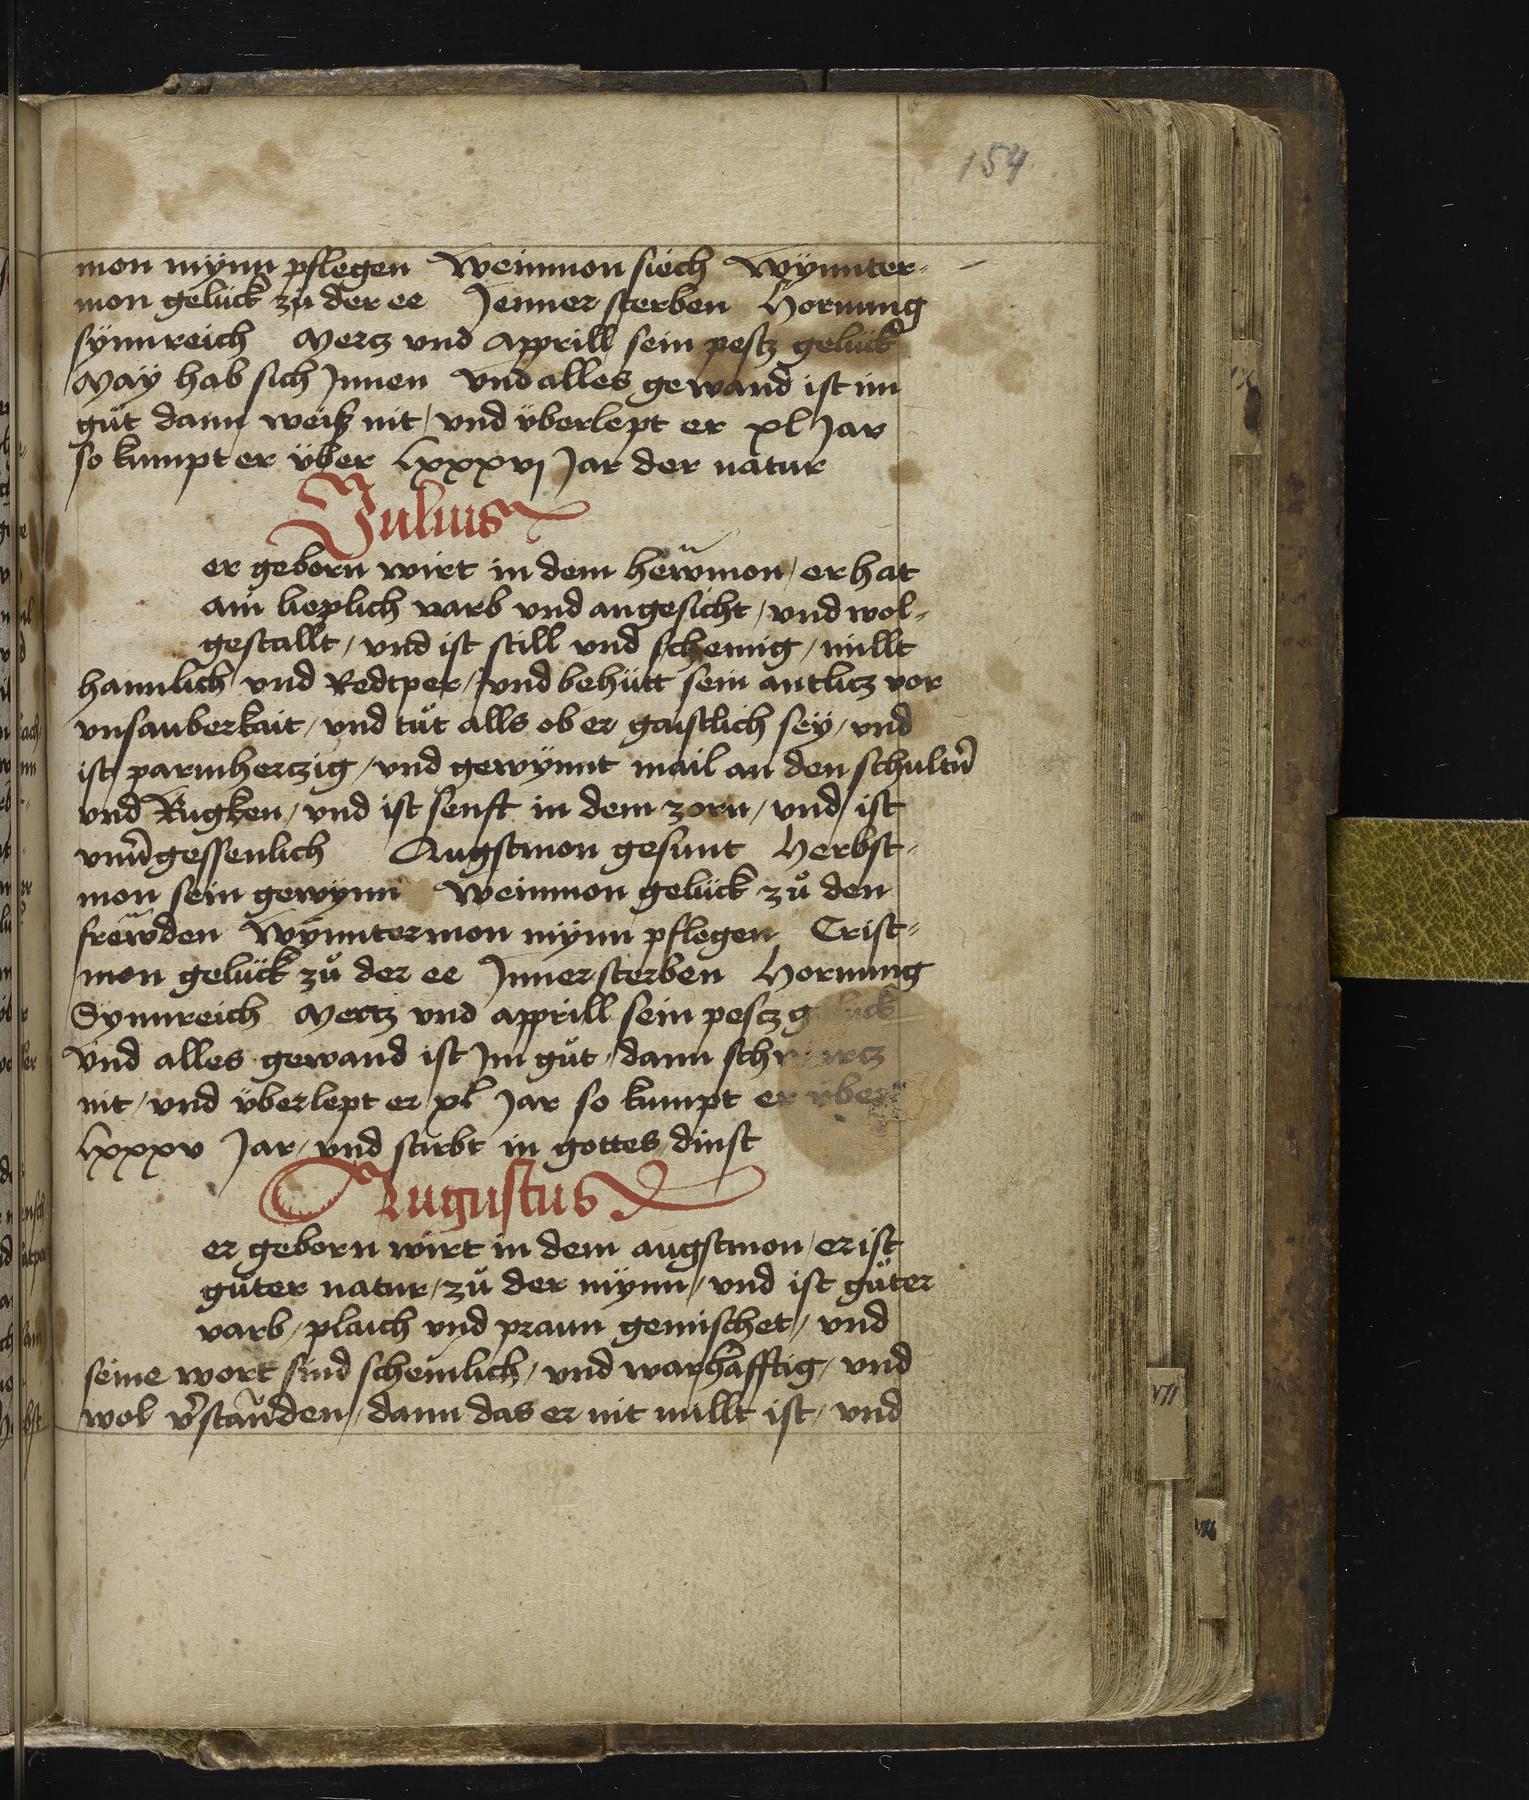 154
mon mynn pflegen Weinmon siech Wÿnnter-
mon gelück zu der ee Jenner sterben Hornung
synnreich Mertz vnd Apprill sein pestz gelück
Maÿ hab sich Jnnen vnd alles gewand ist im
gut dann weiß nit / vnd vberlept er xl Jar
so kumpt er vber lxxxvj Jar der natur
Julius
er geborn wirt in dem hewmon / er hat
ain lieplich varb vnd angesicht / vnd wol-
gestallt / vnd ist still vnd schemig / millt
haimlich vnd Redtper / vnd behütt sein antlitz vor
vnsauberkait / vnd tůt alls ob er gaistlich seÿ / vnd
ist parmhertzig / vnd gewÿnnt mail an den schultn̄
vnd Rugken / vnd ist senft in dem zorn / vnd ist
vnu̇gessenlich Augstmon gesunt Herbst-
mon sein gewynn Weinmon gelück zů den
frewden Wÿnntermon mynn pflegen Crist-
mon gelück zů der ee Jnner sterben Hornung
Synnreich Mertz vnd apprill sein pestz gelück
Vnd alles gewand ist Jm gůt / dann schwartz
nit / vnd vberlept er xl Jar so kumpt er vber
lxxxv Jar / vnd stirbt in gottes dinst
Augustus
er geborn wirt in dem augstmon / er ist
gůter natur / zů der mynn / vnd ist gůter
varb / plaich vnd praun gemischet / vnd
seine wort sind scheinlich / vnd warhafftig / vnd
wol v̇standen / dann das er nit millt ist / vnd
VII